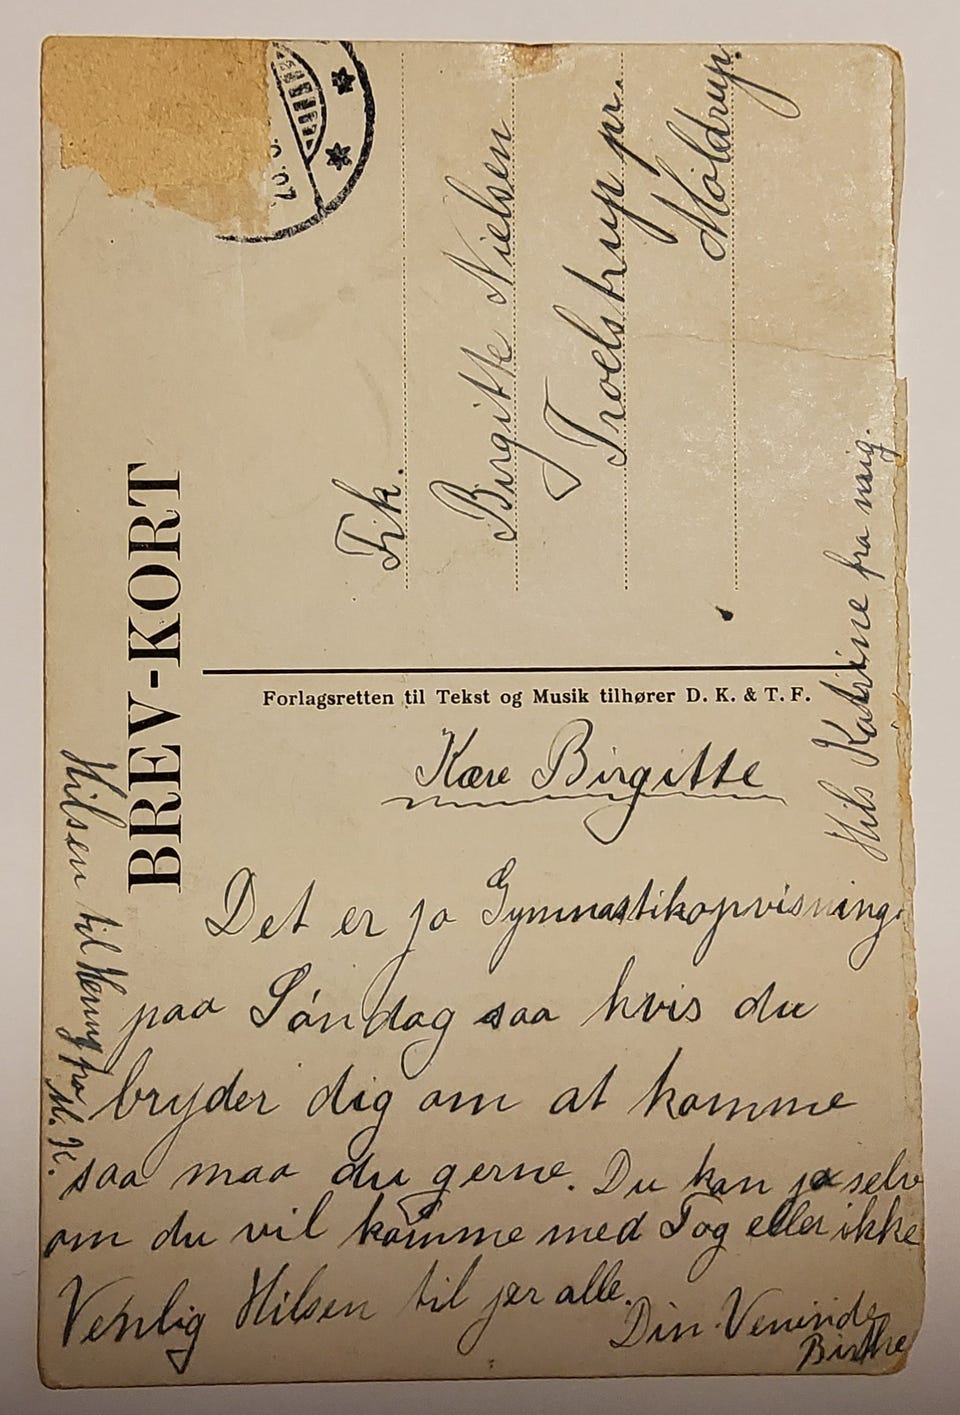 BREV-KORT
Frk.
Birgitte Nielsen
Troelstrup pr.
Møldrup.
Forlagsretten til Tekst og Musik tilhører D. K. & T. F.
Kære Birgitte
Det er jo Gymnastikopvisning
paa Søndag saa hvis du
bryder dig om at komme
saa maa du gerne. Du kan jo selv
om du vil komme med Tog eller ikke
Venlig Hilsen til jer alle.
Din Veninde
Birthe
Hils Katrine fra mig.
Hilsen til fra
M. K.